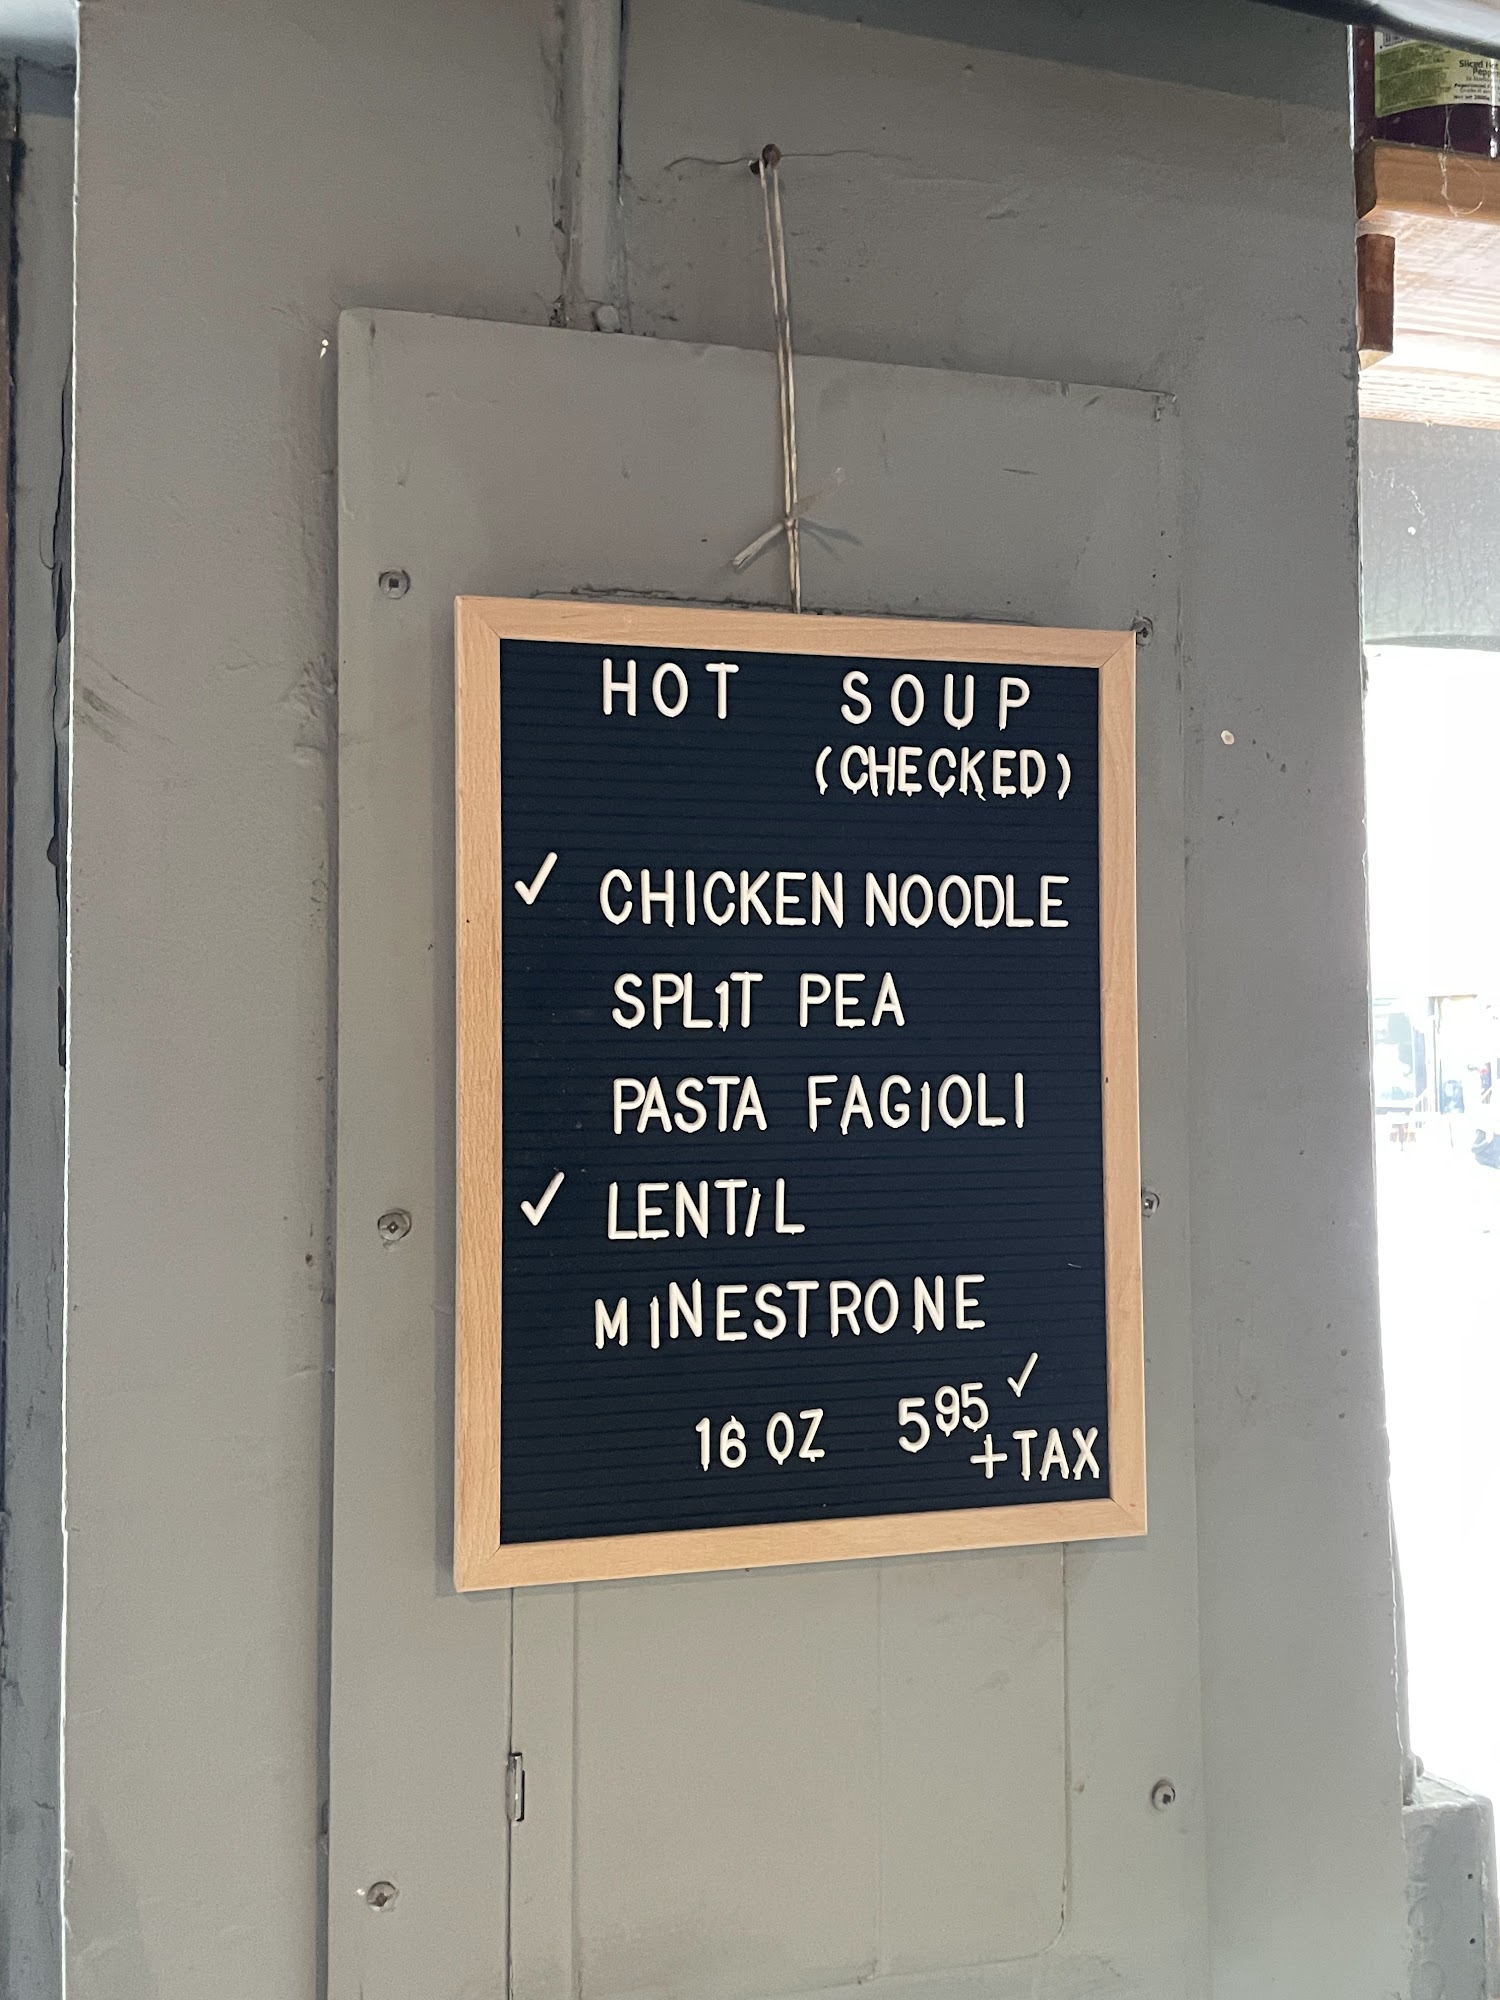 Sliced Hot
HOT SOUP
(CHECKED)
✓ CHICKEN NOODLE
SPLIT PEA
PASTA FAGIOLI
✓ LENTIL
MINESTRONE
16 OZ 5 95 ✓
+TAX